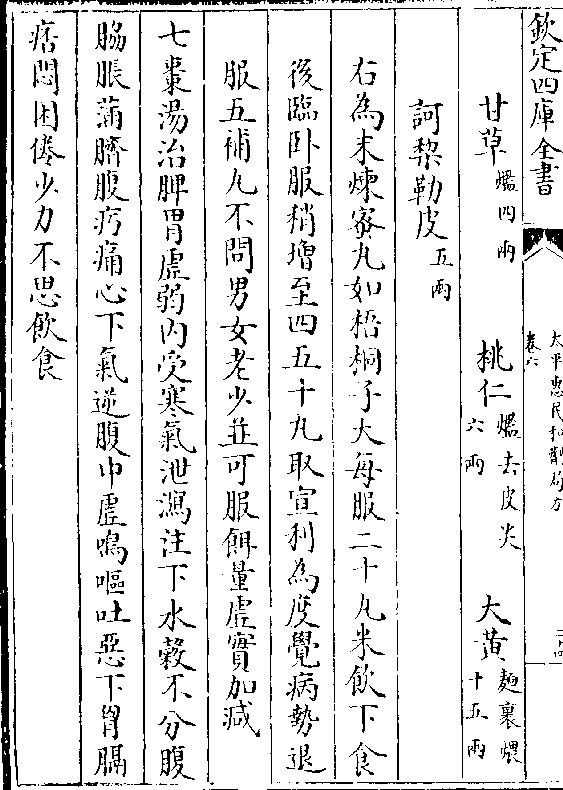 欽定四庫全書
太平惠民和劑局方
卷六
二十四
甘草爁四兩 桃仁爁去皮炎六兩 大黄麵裹煨十五兩
訶黎勒皮五兩
右為末煉蜜丸如梧桐子大每服二十丸米飲下食
後臨卧服稍增至四五十丸取宣利為度覺病勢退
服五補丸不問男女老少並可服餌量虛實加減
七棗湯治脾胃虛弱内受寒氣泄瀉注下水穀不分腹
脇脹滿臍腹㽲痛心下氣逆腹中虛鳴嘔吐惡下胷膈
痞悶困倦少力不思飲食